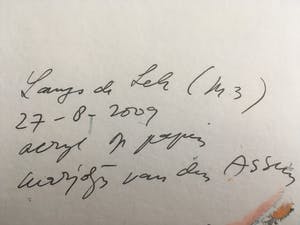 Langs de Lek (nr 3)
27-8-2009
acryl op papier
Marjolijn van den Assem